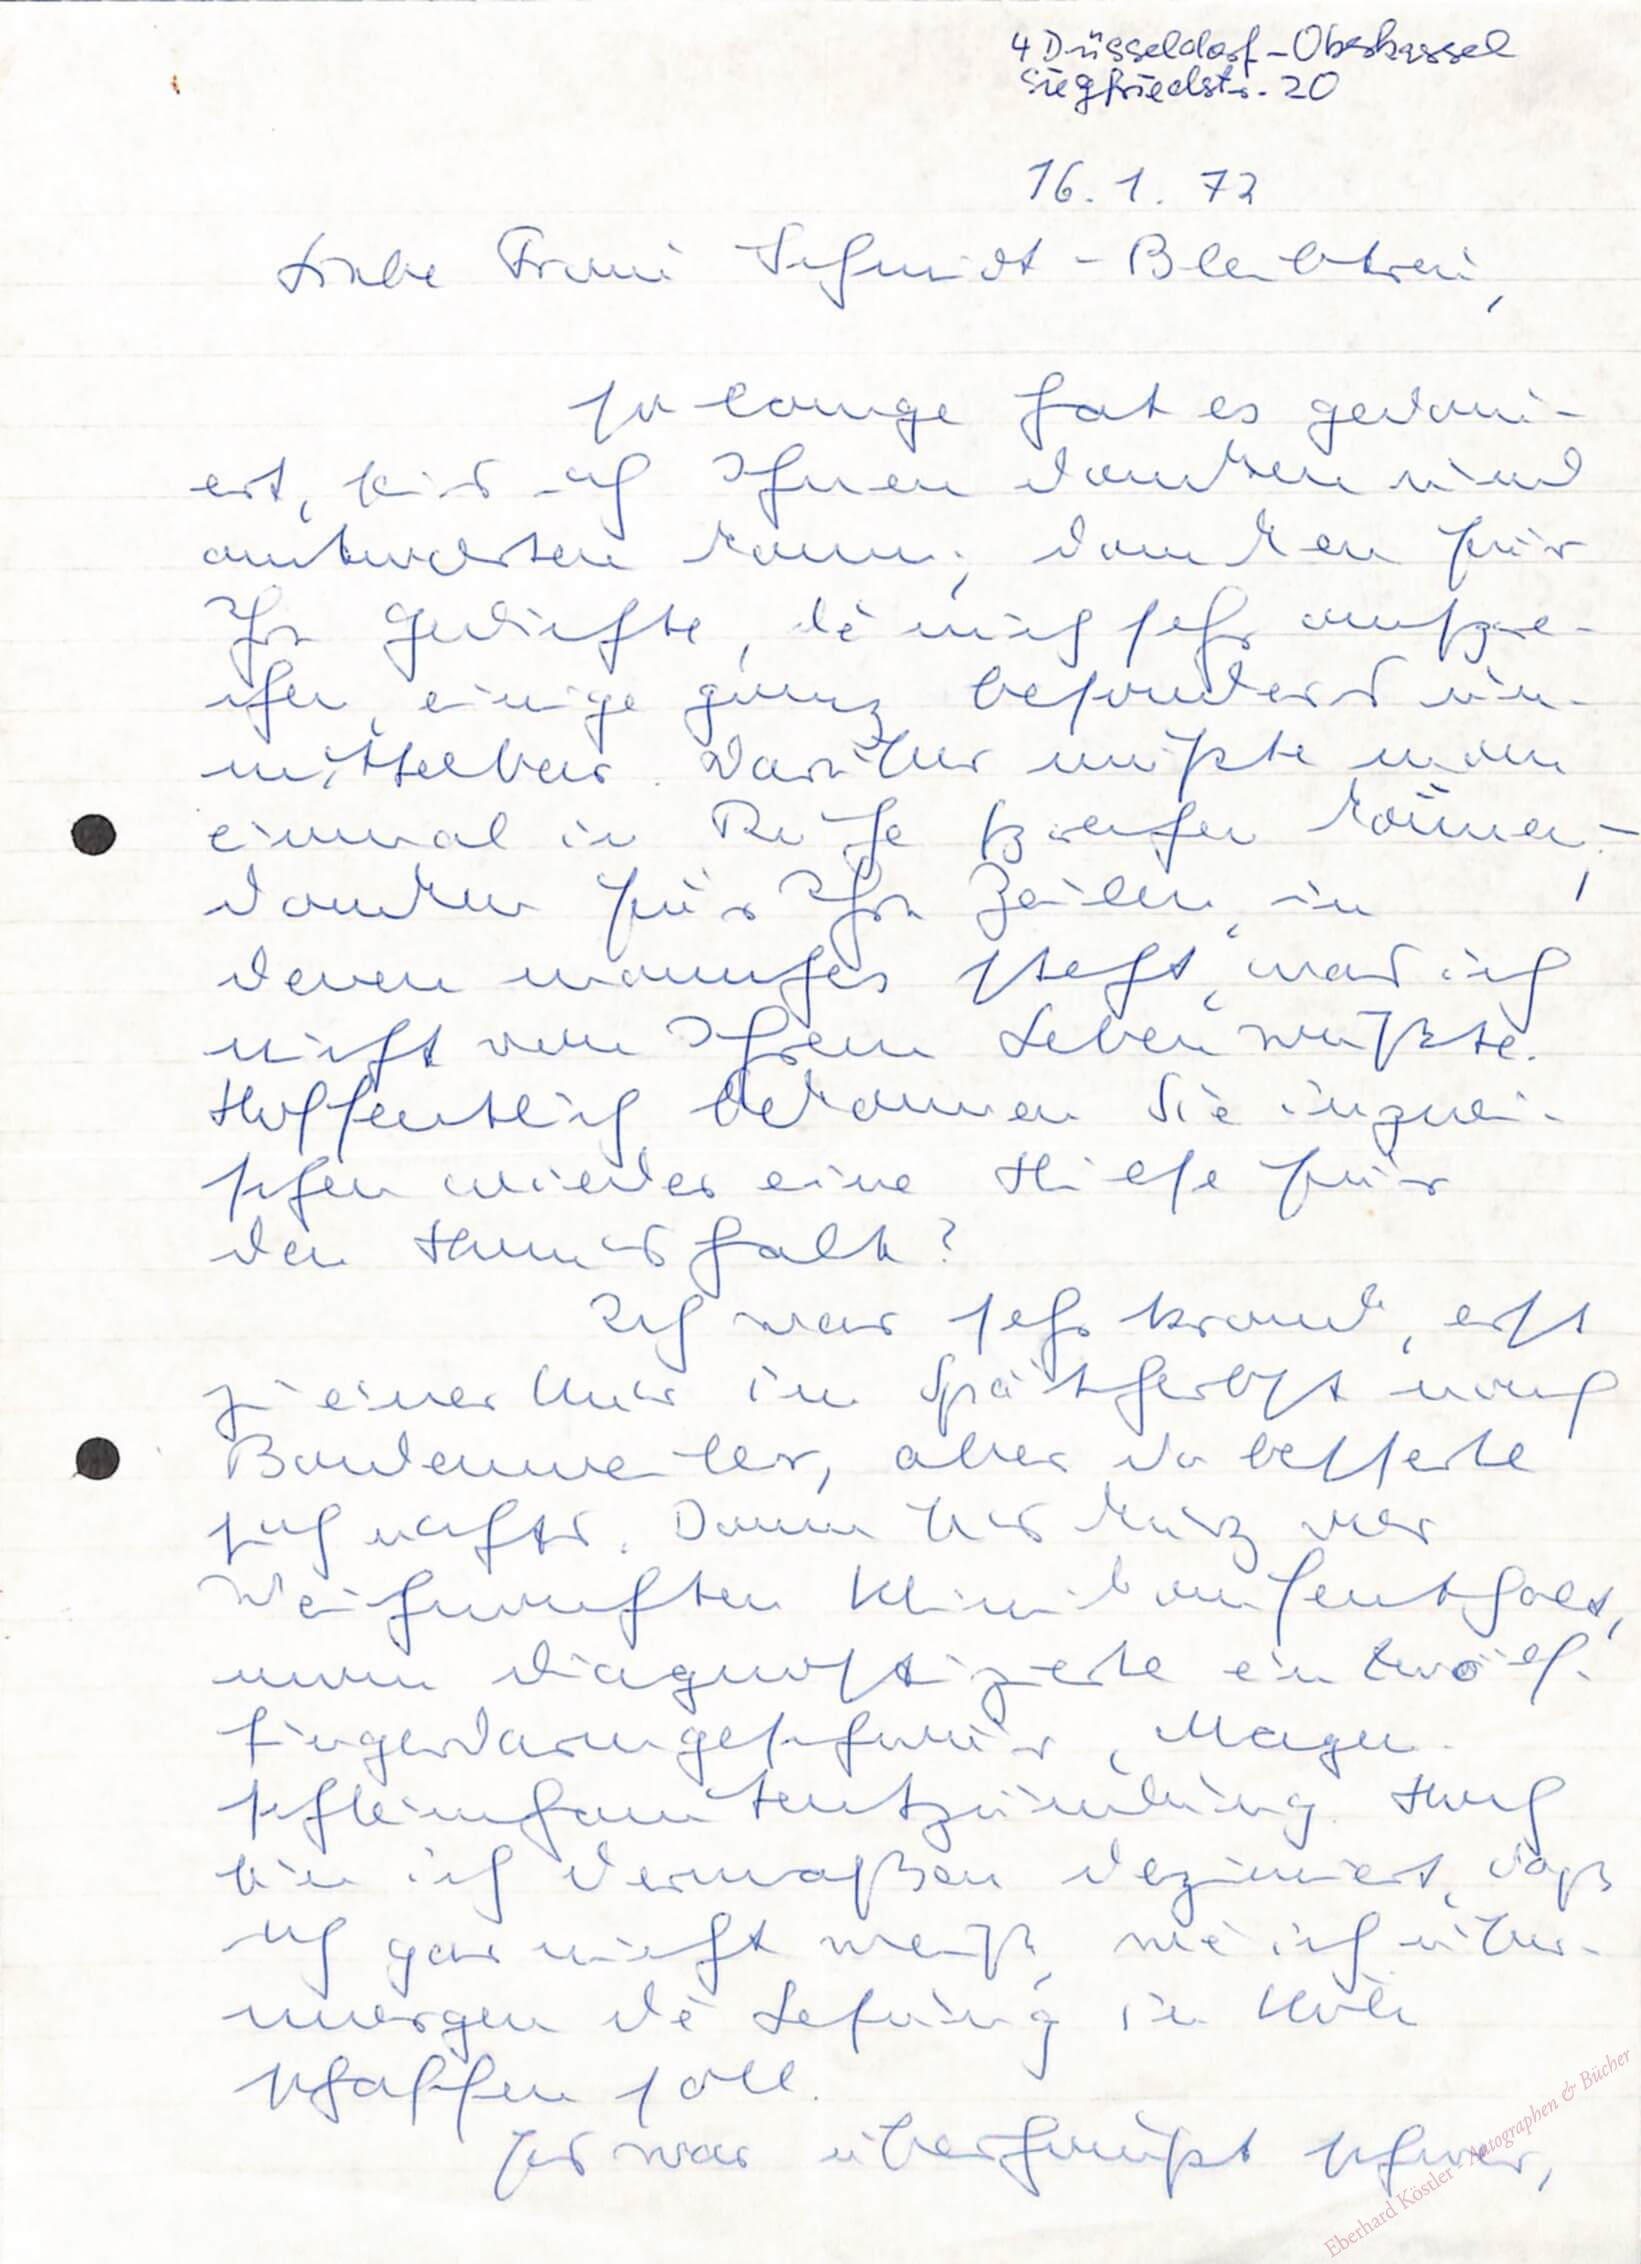 4 Düsseldorf-Oberkassel
Siegfriedstr. 20
16. 1. 72
Liebe Frau Schmidt-Bleibtreu,
so lange hat es gedau-
ert, bis ich Ihnen danken und
antworten kann; danken für
Ihre Gedichte, die mich sehr anspre-
chen, einige ganz besonders un-
mittelbar. Darüber müßte man
einmal in Ruhe sprechen können, -
danken für Ihre Zeilen, in
denen manches steht, was ich
nicht von Ihrem Leben wußte.
Hoffentlich bekamen Sie inzwi-
schen wieder eine Hilfe für
den Haushalt?
Ich war sehr krank, erst
zu einer Kur im Spätherbst nach
Badenweiler, aber da besserte
sich nichts. Dann bis kurz vor
Weihnachten Klinikaufenthalt,
man diagnostizierte ein Zwölf-
fingerdarmgeschwür, Magen-
schleimhautentzündung. Noch
bin ich dermaßen deziemiert, daß
ich gar nicht weiß, wie ich über-
morgen die Lesung in Köln
schaffen soll.
Es war überhaupt schwer,
Eberhard Köstler - Autographen & Bücher